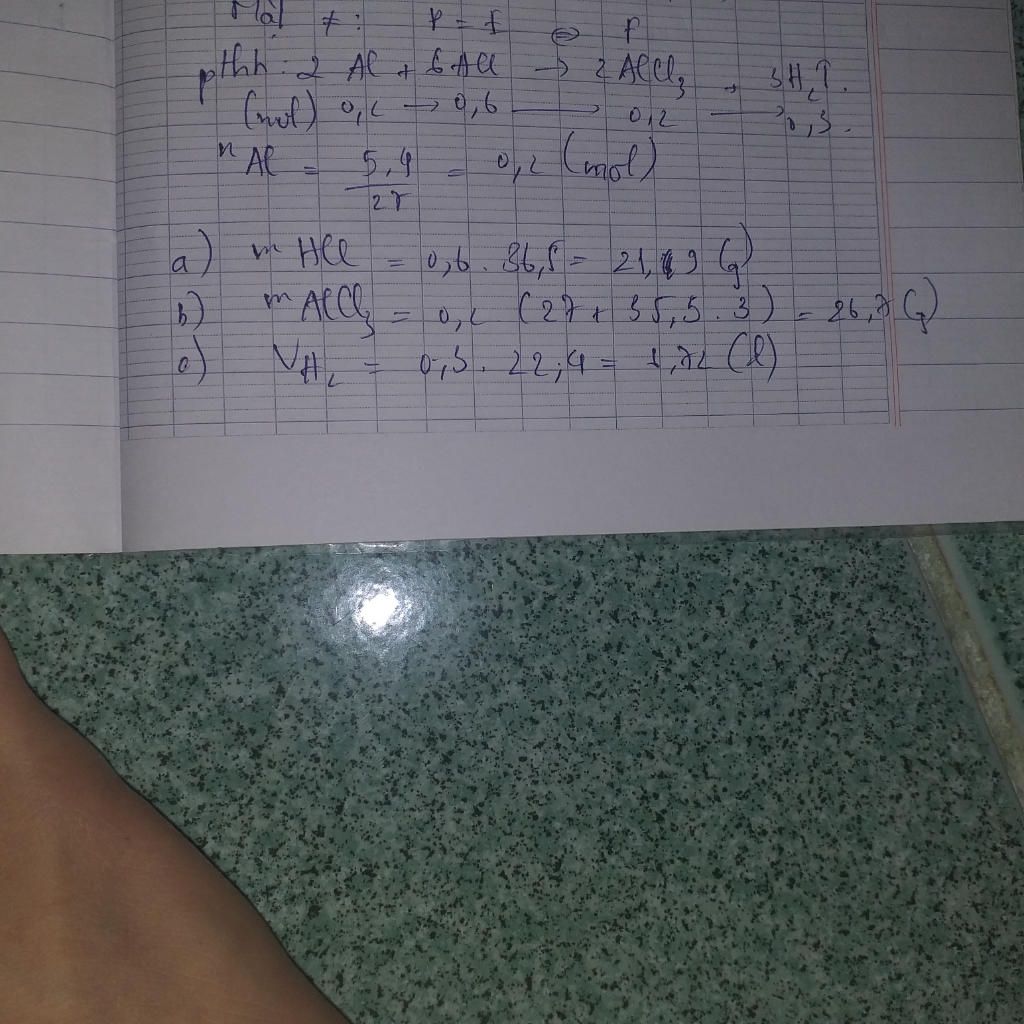 pthh: 2 Al + 6 HCl → 2 AlCl₃ + 3H₂↑.
(mol) 0,2 → 0,6 → 0,2 → 0,3.
n Al = 5,4 / 27 = 0,2 (mol)
a) m HCl = 0,6 . 36,5 = 21,9 (g)
b) m AlCl₃ = 0,2 (27 + 35,5 . 3) = 26,7 (g)
c) V H₂ = 0,3 . 22,4 = 6,72 (l)